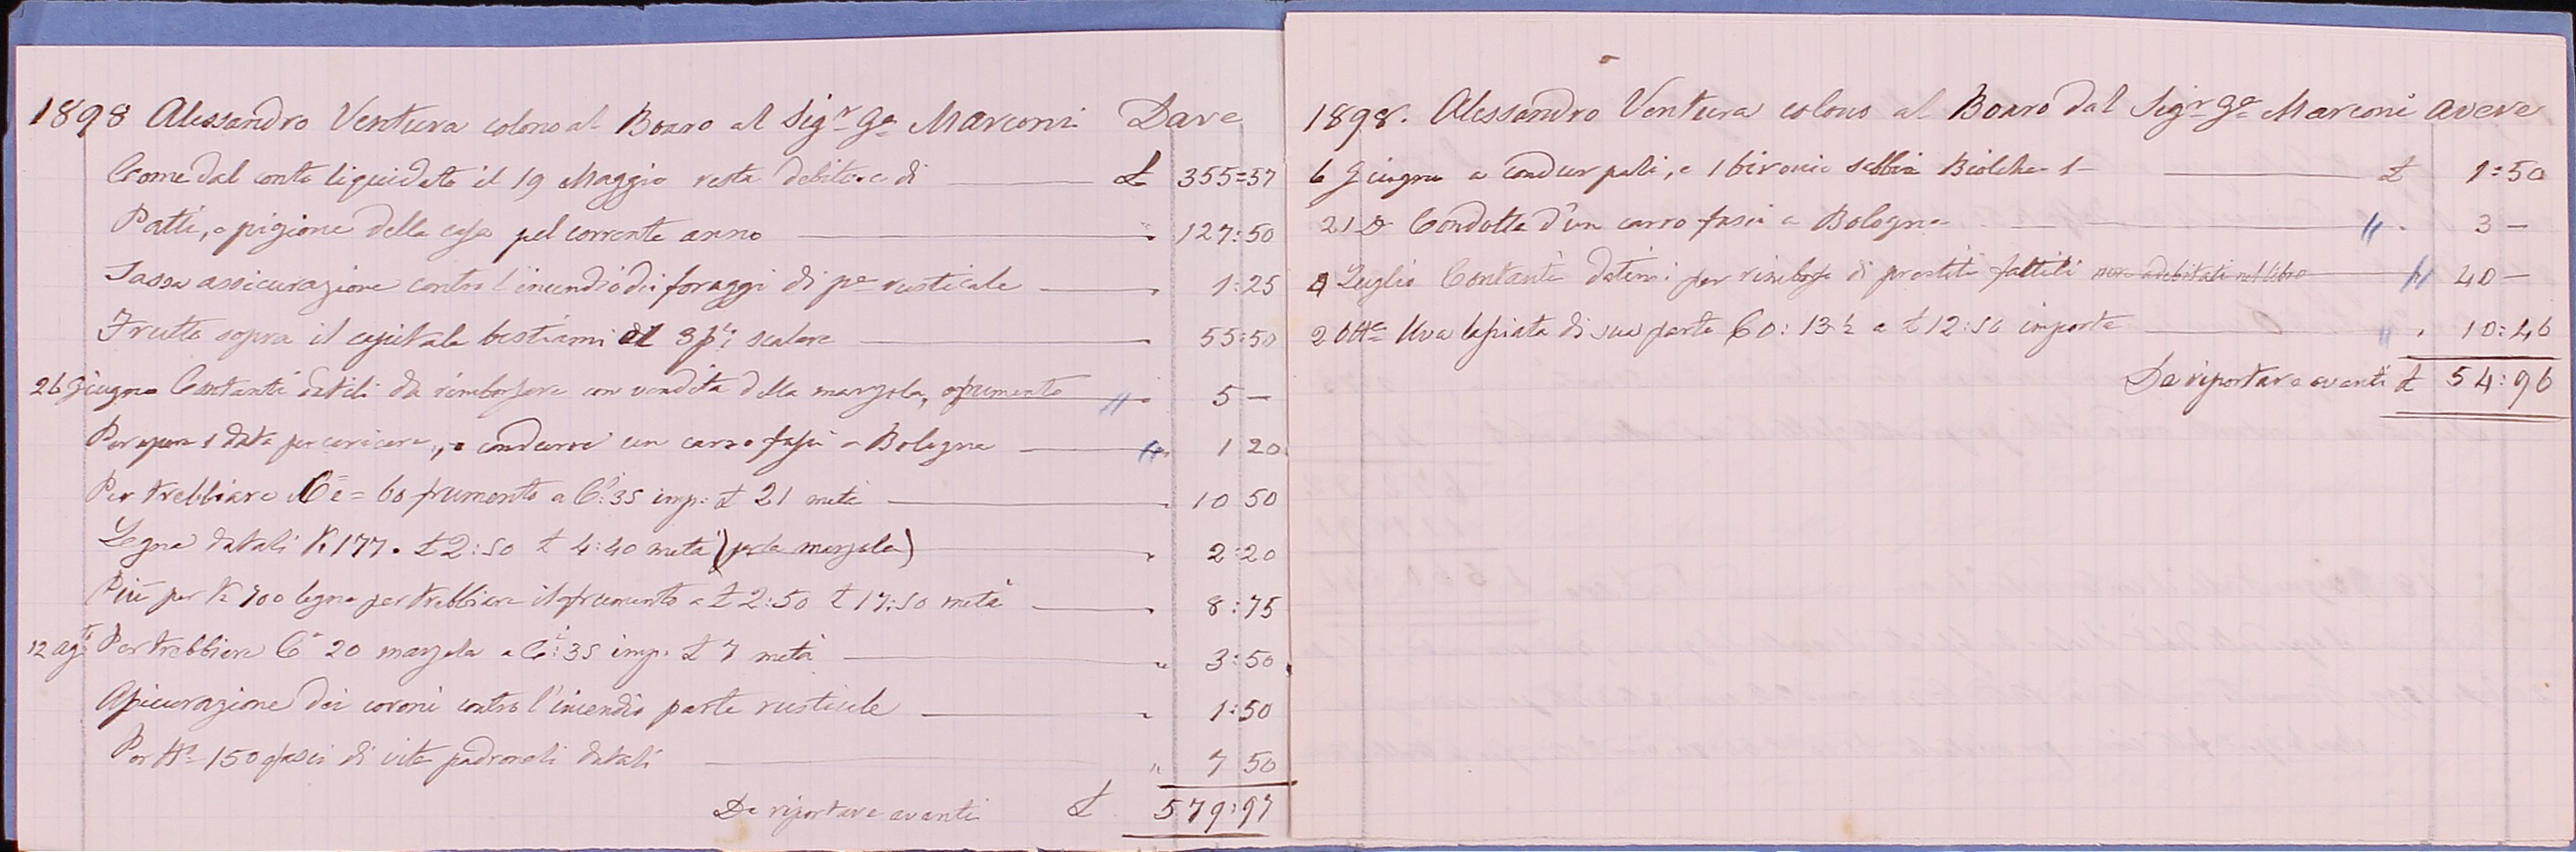 1898 Alessandro Ventura colono al Boaro al Sigr Ge Marconi Dare
Come dal conto liquidato il 19 Maggio resta debitore di £ 355=57
Patti, e pigione della casa pel corrente anno " 127:50
Tassa assicurazione contro l'incendio dei foraggi di pe rusticale " 1:25
Frutto sopra il capitale bestiami al 3 p% scalare " 55:50
26 Giugno Contanti datili da rimborsare con vendita della marzola, o frumento " 5 —
Per opera 1 data per caricare, e condurre un carro fassi a Bologna " 1 20
Per trebbiare Ce = 60 frumento a C: 35 imp: £ 21 metà 10 50
Legna datali K 177 . £ 2:50 £ 4:40 metà (per la marzola) " 2:20
Più per K 700 legna per trebbiare il frumento a £ 2:50 £ 17:50 metà " 8:75
12 agto Per trebbiare Ce 20 marzola a Ci: 35 imp. £ 7 metà " 3:50
Assicurazione dei covoni contro l'incendio parte rusticale " 1:50
Per No 150 fassi di vite padronali datali " 7 50
Da riportare avanti £ 579:97
1898. Alessandro Ventura colono al Boaro dal Sigr Ge Marconi avere
6 Giugno a condur pali, e 1 birocio sabbia £ 1:50
21 Do Condotta d'un carro fassi a Bologna " 3 —
4 Luglio Contanti datimi per rimborso di prestiti fattili non adebitati nel libro " 40 —
2 Otte Uva lasciata di sua parte C 0: 13 ½ a £ 12:50 importa " 10:46
Da riportare avanti £ 54:96